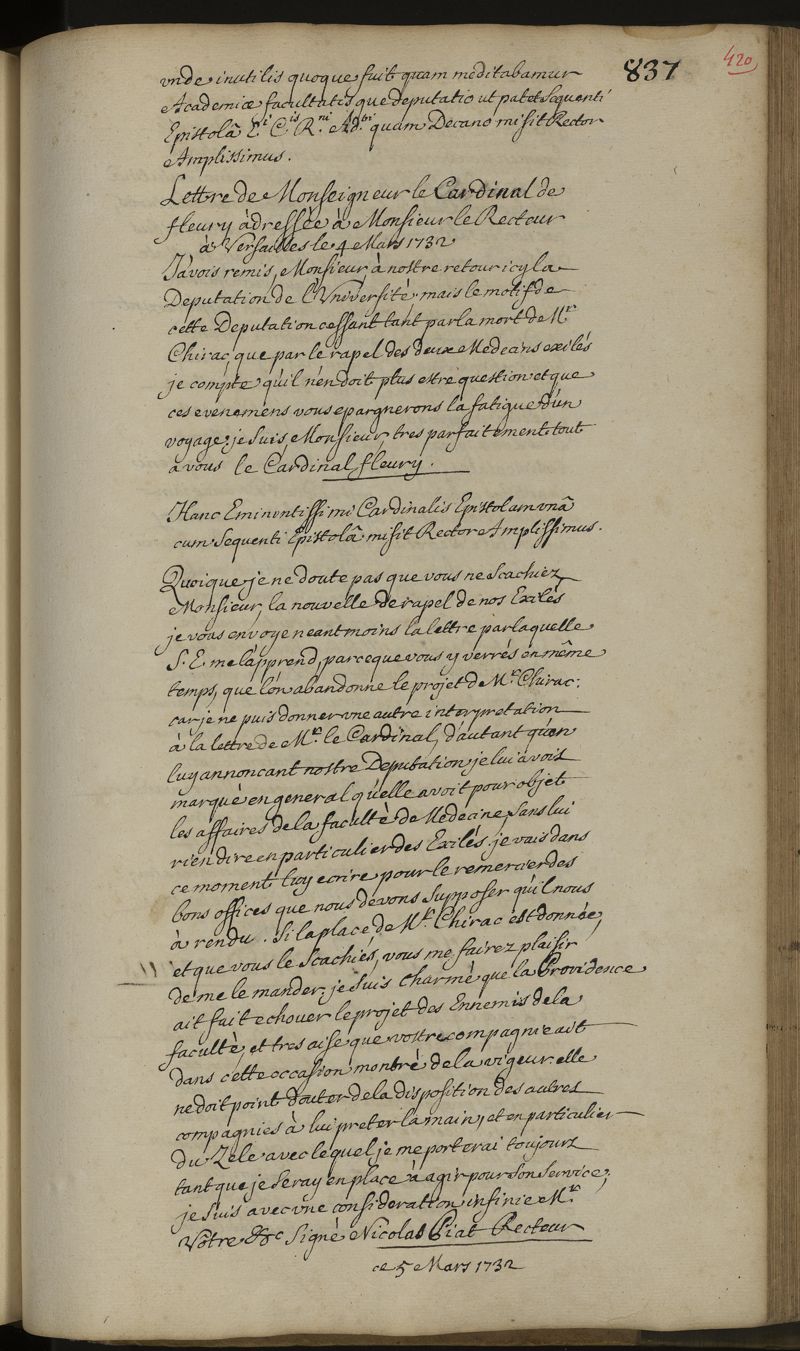 837
420
vnde inutilis quoque fuit quam meditabamur
Academiæ facultatisque deputatio ut patet Sequenti
Epistolâ E.i C.is R.mi Ad.tri quam Decano misit Rector
Amplissimus.
Lettre de Monseigneur le Cardinal de
fleury àdressèe à Monsieur le Recteur
à Versailles le 4 Mars 1732
J'àvois remis, Monsieur à nostre retour icy la
Deputation de l'Vniversité, mais le motif de
cette Deputation cessant tant par la mort de M.r
Chirac, que par le rapel des deux Medecins exilés
je compte qu'il n'en doit plus estre question et que
ces evenemens vous epargnerons la fatigue d'un
voyage; je suis, Monsieur, tres parfaitement tout
a vous le Cardinal fleury.
Hanc Eminentissimi Cardinalis Epistolam vnâ
cum Sequenti Epistolâ misit Rector Amplissimus.
Quoique je ne doute pas que vous ne Scachiez
Monsieur, la nouvelle de rapel de nos Exilés
je vous envoye neantmoins la lettre par laquelle
S. E. me l'apprend, parceque vous y verrés en même
temps, que l'on abandonne le projet de M.r Chirac:
car je ne puis donner vne autre interpretation
à la lettre de M.r le Cardinal, d'autant qu'en
luy annoncant nostre Deputation je lui avois
marqué en general qu'elle avoit pour objet
les affaires de la facultè de Medecine Sans lui
rien dire en particulier des Exilés. je vais dans
ce moment luy ecrire pour le remercier des
bons offices que nous devons Supposer qu'il nous
à rendu. Si la place de M.r Chirac est donnée,
et que vous le Scachiés, vous me fairez plaisir
de me le mander; je suis charmé que la Providence
ait fait echouer le projet des Ennemis de la
facultè, et tres aise que vostre compagnie ait
dans cette occasion montré de la vigeur elle
ne doit point douter de la disposition des autres
compagnies à lui preter la main, et en particulier
du Zele avec lequel je me porterai toujours
tant que je Seray en place à agir pour son service;
je suis avec vne consideration infinie M.r
Vôtre &c Signé Nicolas Piat Recteur
ce 5 Mars 1732